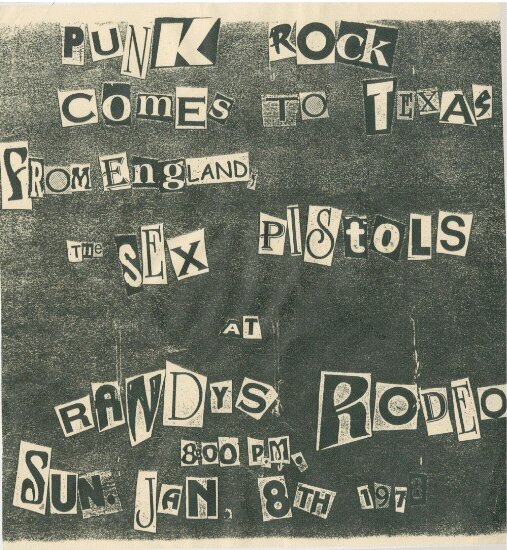 PUNK ROCK
COMES TO TEXAS
FROM ENGLAND,
THE SEX PISTOLS
AT
RANDYS RODEO
8:00 P.M.
SUN. JAN. 8TH 1978